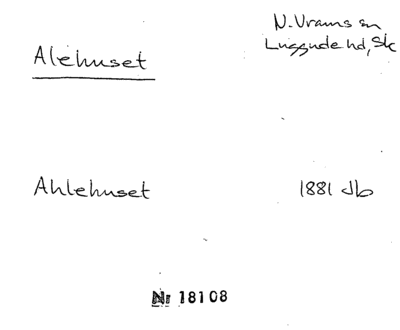 N. Vrams sn
Luggude hd, Sk
Alehuset
Ahlehuset 1881 db
Nr 18108